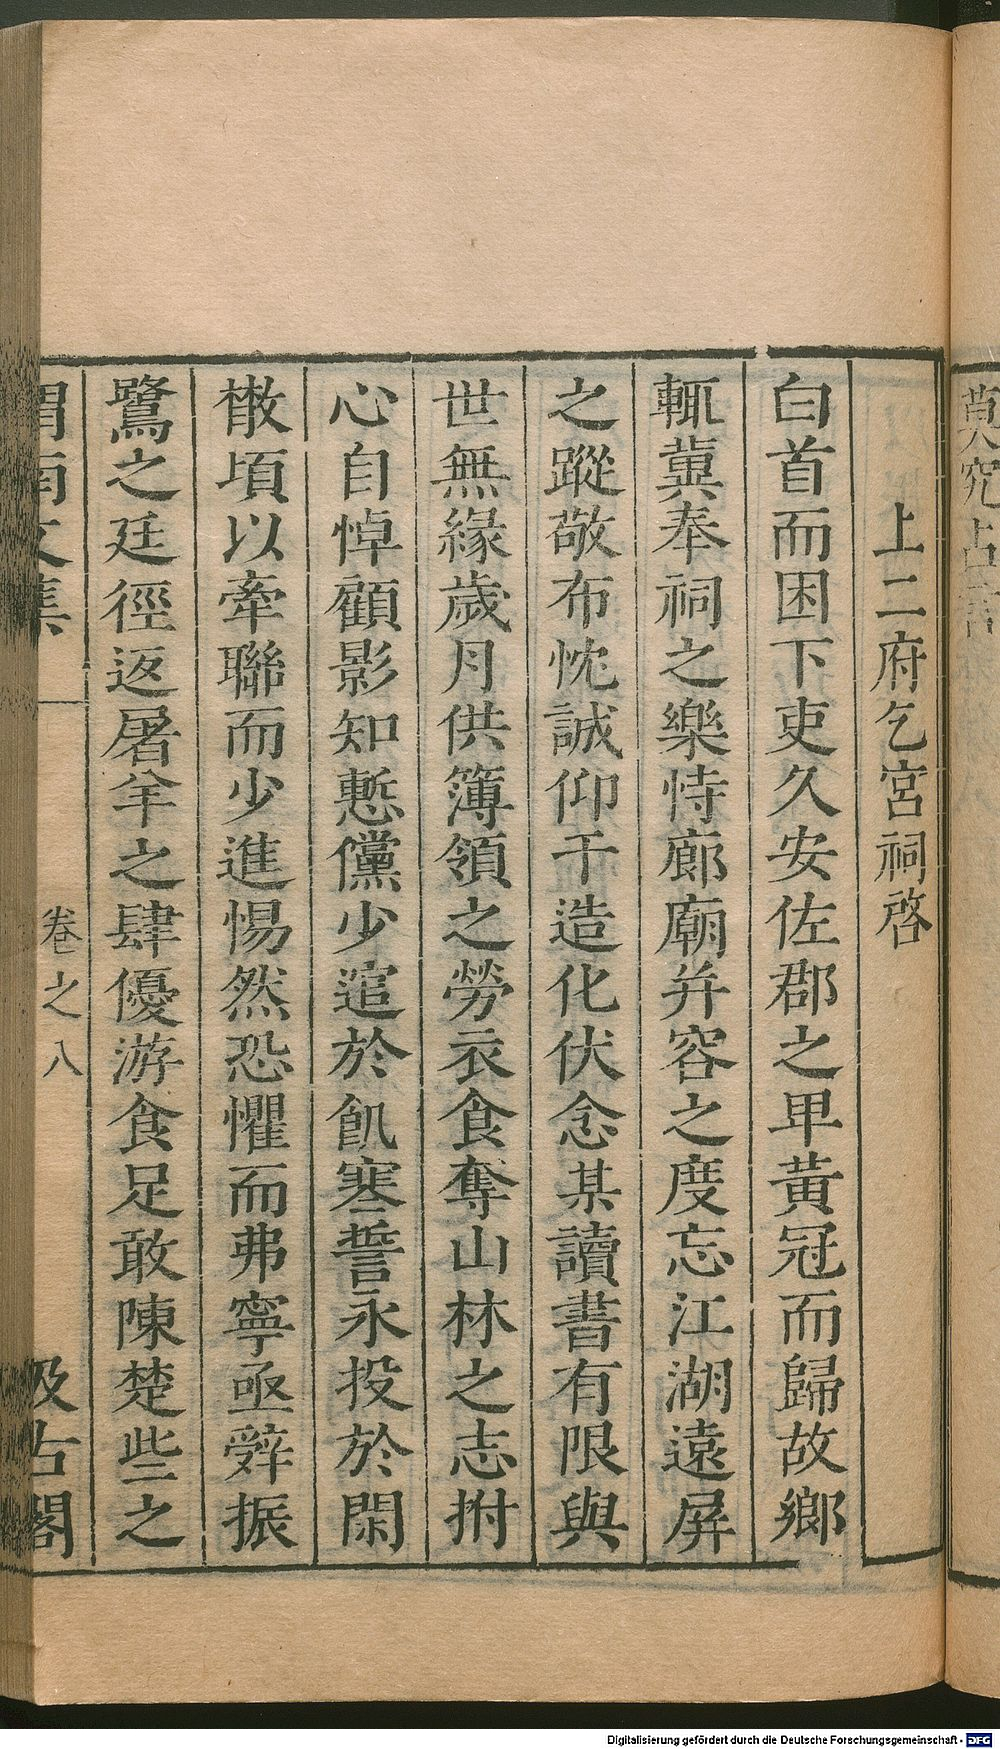 上二府乞宮祠啓
白首而困下吏久安佐郡之卑黃冠而歸故鄉
輒冀奉祠之樂恃廊廟并容之度忘江湖遠屏
之蹤敬布忱誠仰干造化伏念某讀書有限與
世無緣歲月供簿領之勞衣食奪山林之志拊
心自悼顧影知慙儻少逭於飢寒誓永投於閑
散頃以牽聯而少進惕然恐懼而弗寧亟辤振
鷺之廷徑返屠羊之肆優游食足敢陳楚些之
渭南文集
卷之八
汲古閣
Digitalisierung gefördert durch die Deutsche Forschungsgemeinschaft - DFG